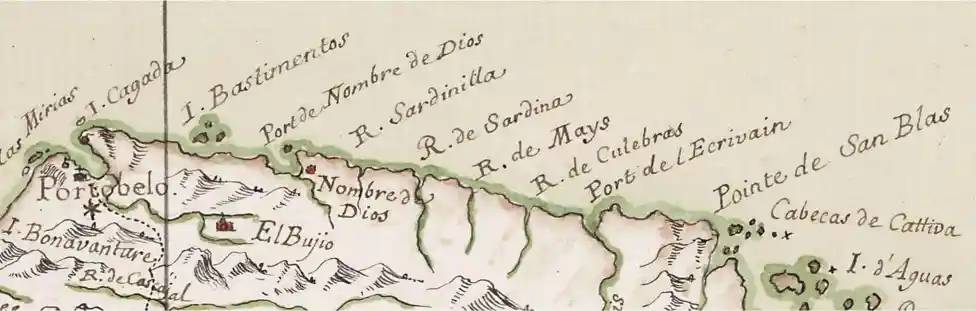 las Mirias
I. Cagada
I. Bastimentos
Port de Nombre de Dios
R. Sardinilla
R. de Sardina
R. de Mays
R. de Culebras
Port de l Ecrivain
Pointe de San Blas
Cabecas de Cattiva
I. d'Aguas
Portobelo
Nombre de
Dios
El Bujio
I. Bonavanture
R. de Cascajal